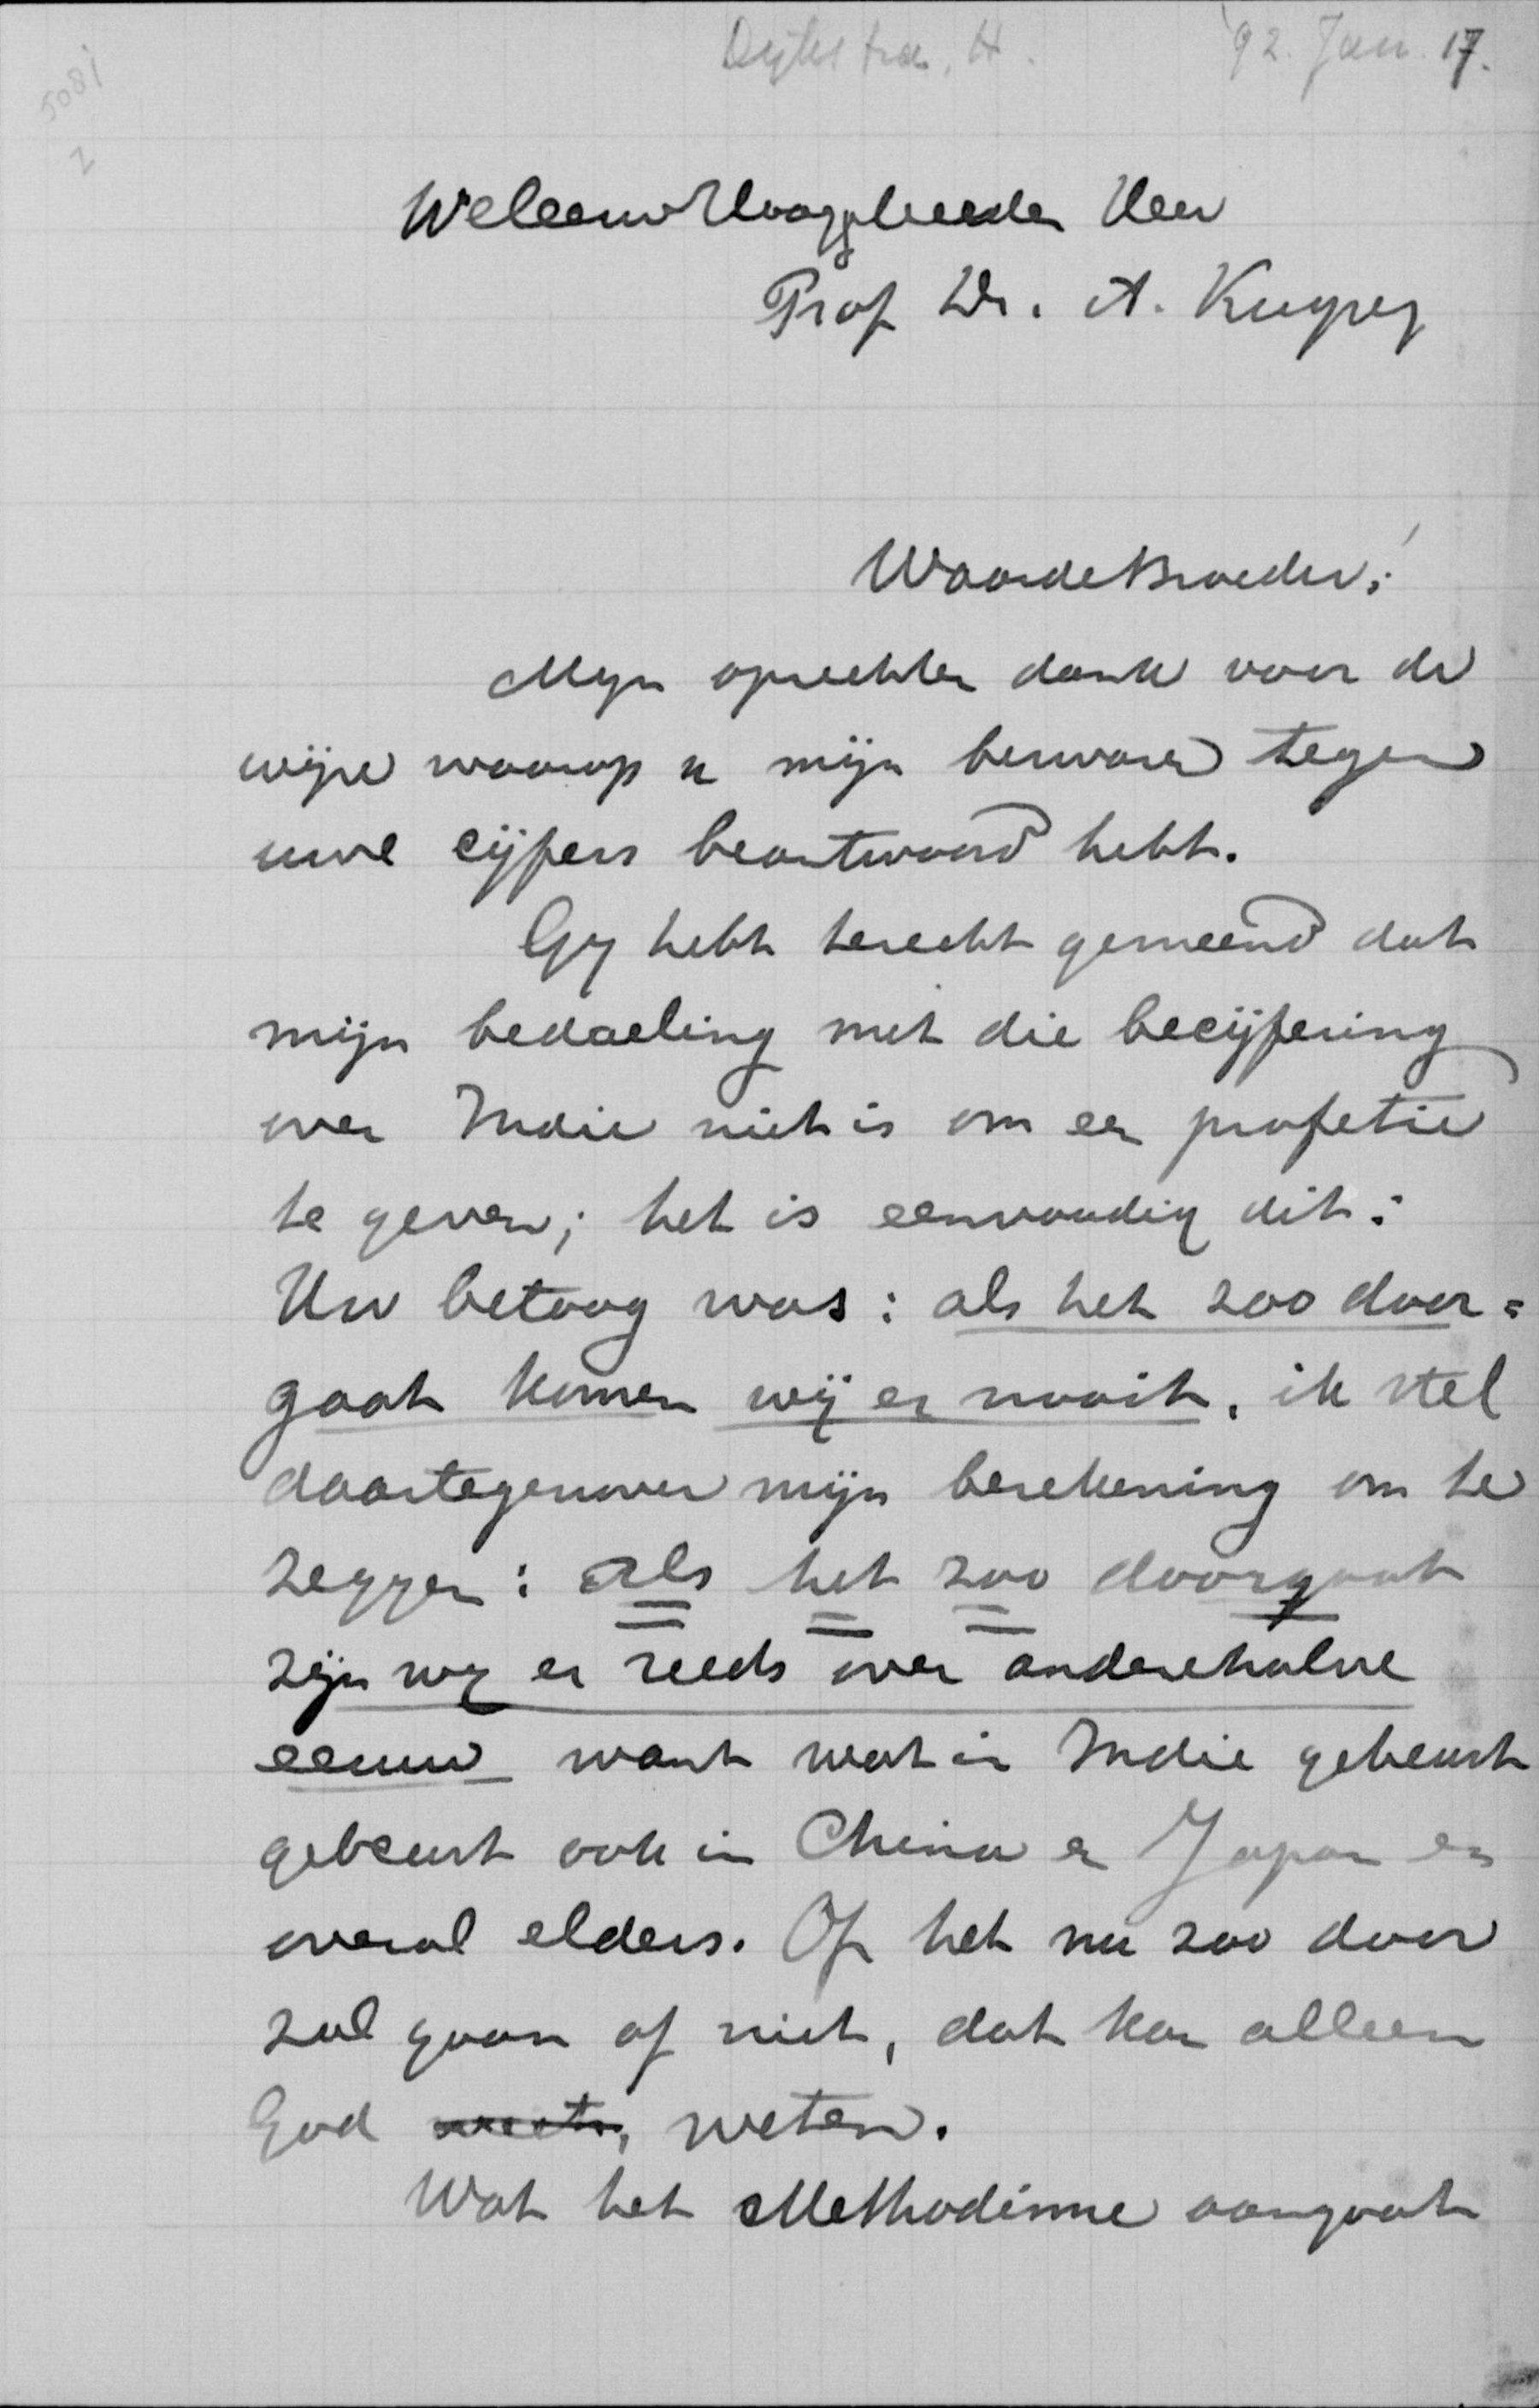 Dijkstra, H. '92. Jan. 17.
5081
2
WeleerwHooggeleerden Heer
Prof Dr. A. Kuyper
Waarde Broeder!
Mijn oprechten dank voor de
wijze waarop u mijn bezwaren tegen
uwe cijfers beantwoord hebt.
Gij hebt terecht gemeend dat
mijn bedoeling met die becijfering
over Indie niet is om een profetie
te geven; het is eenvoudig dit:
Uw betoog was: als het zoo door=
gaat komen wij er nooit, ik stel
daartegenover mijn berekening om te
zeggen: als het zoo doorgaat
zijn wij er reeds over anderehalve
eeuw want wat in Indie gebeurt
gebeurt ook in China en Japan en
overal elders. Of het nu zoo door
zal gaan of niet, dat kan alleen
God weet, weten.
Wat het Methodisme aangaat